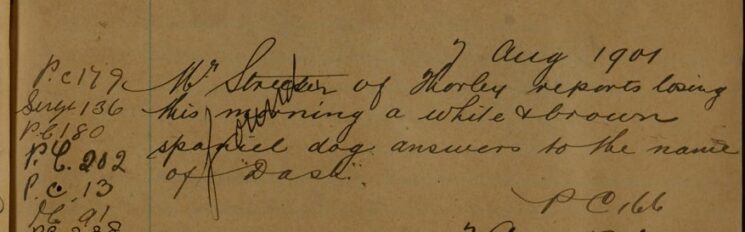 7 Aug 1901
P.C 179
Sergt 136
P.C 180
P.C. 202
P.C. 13
91
Mr Streeter of Thorley reports losing
this morning a white & brown
spaniel dog answers to the name
of "Dash".
found
P C 166